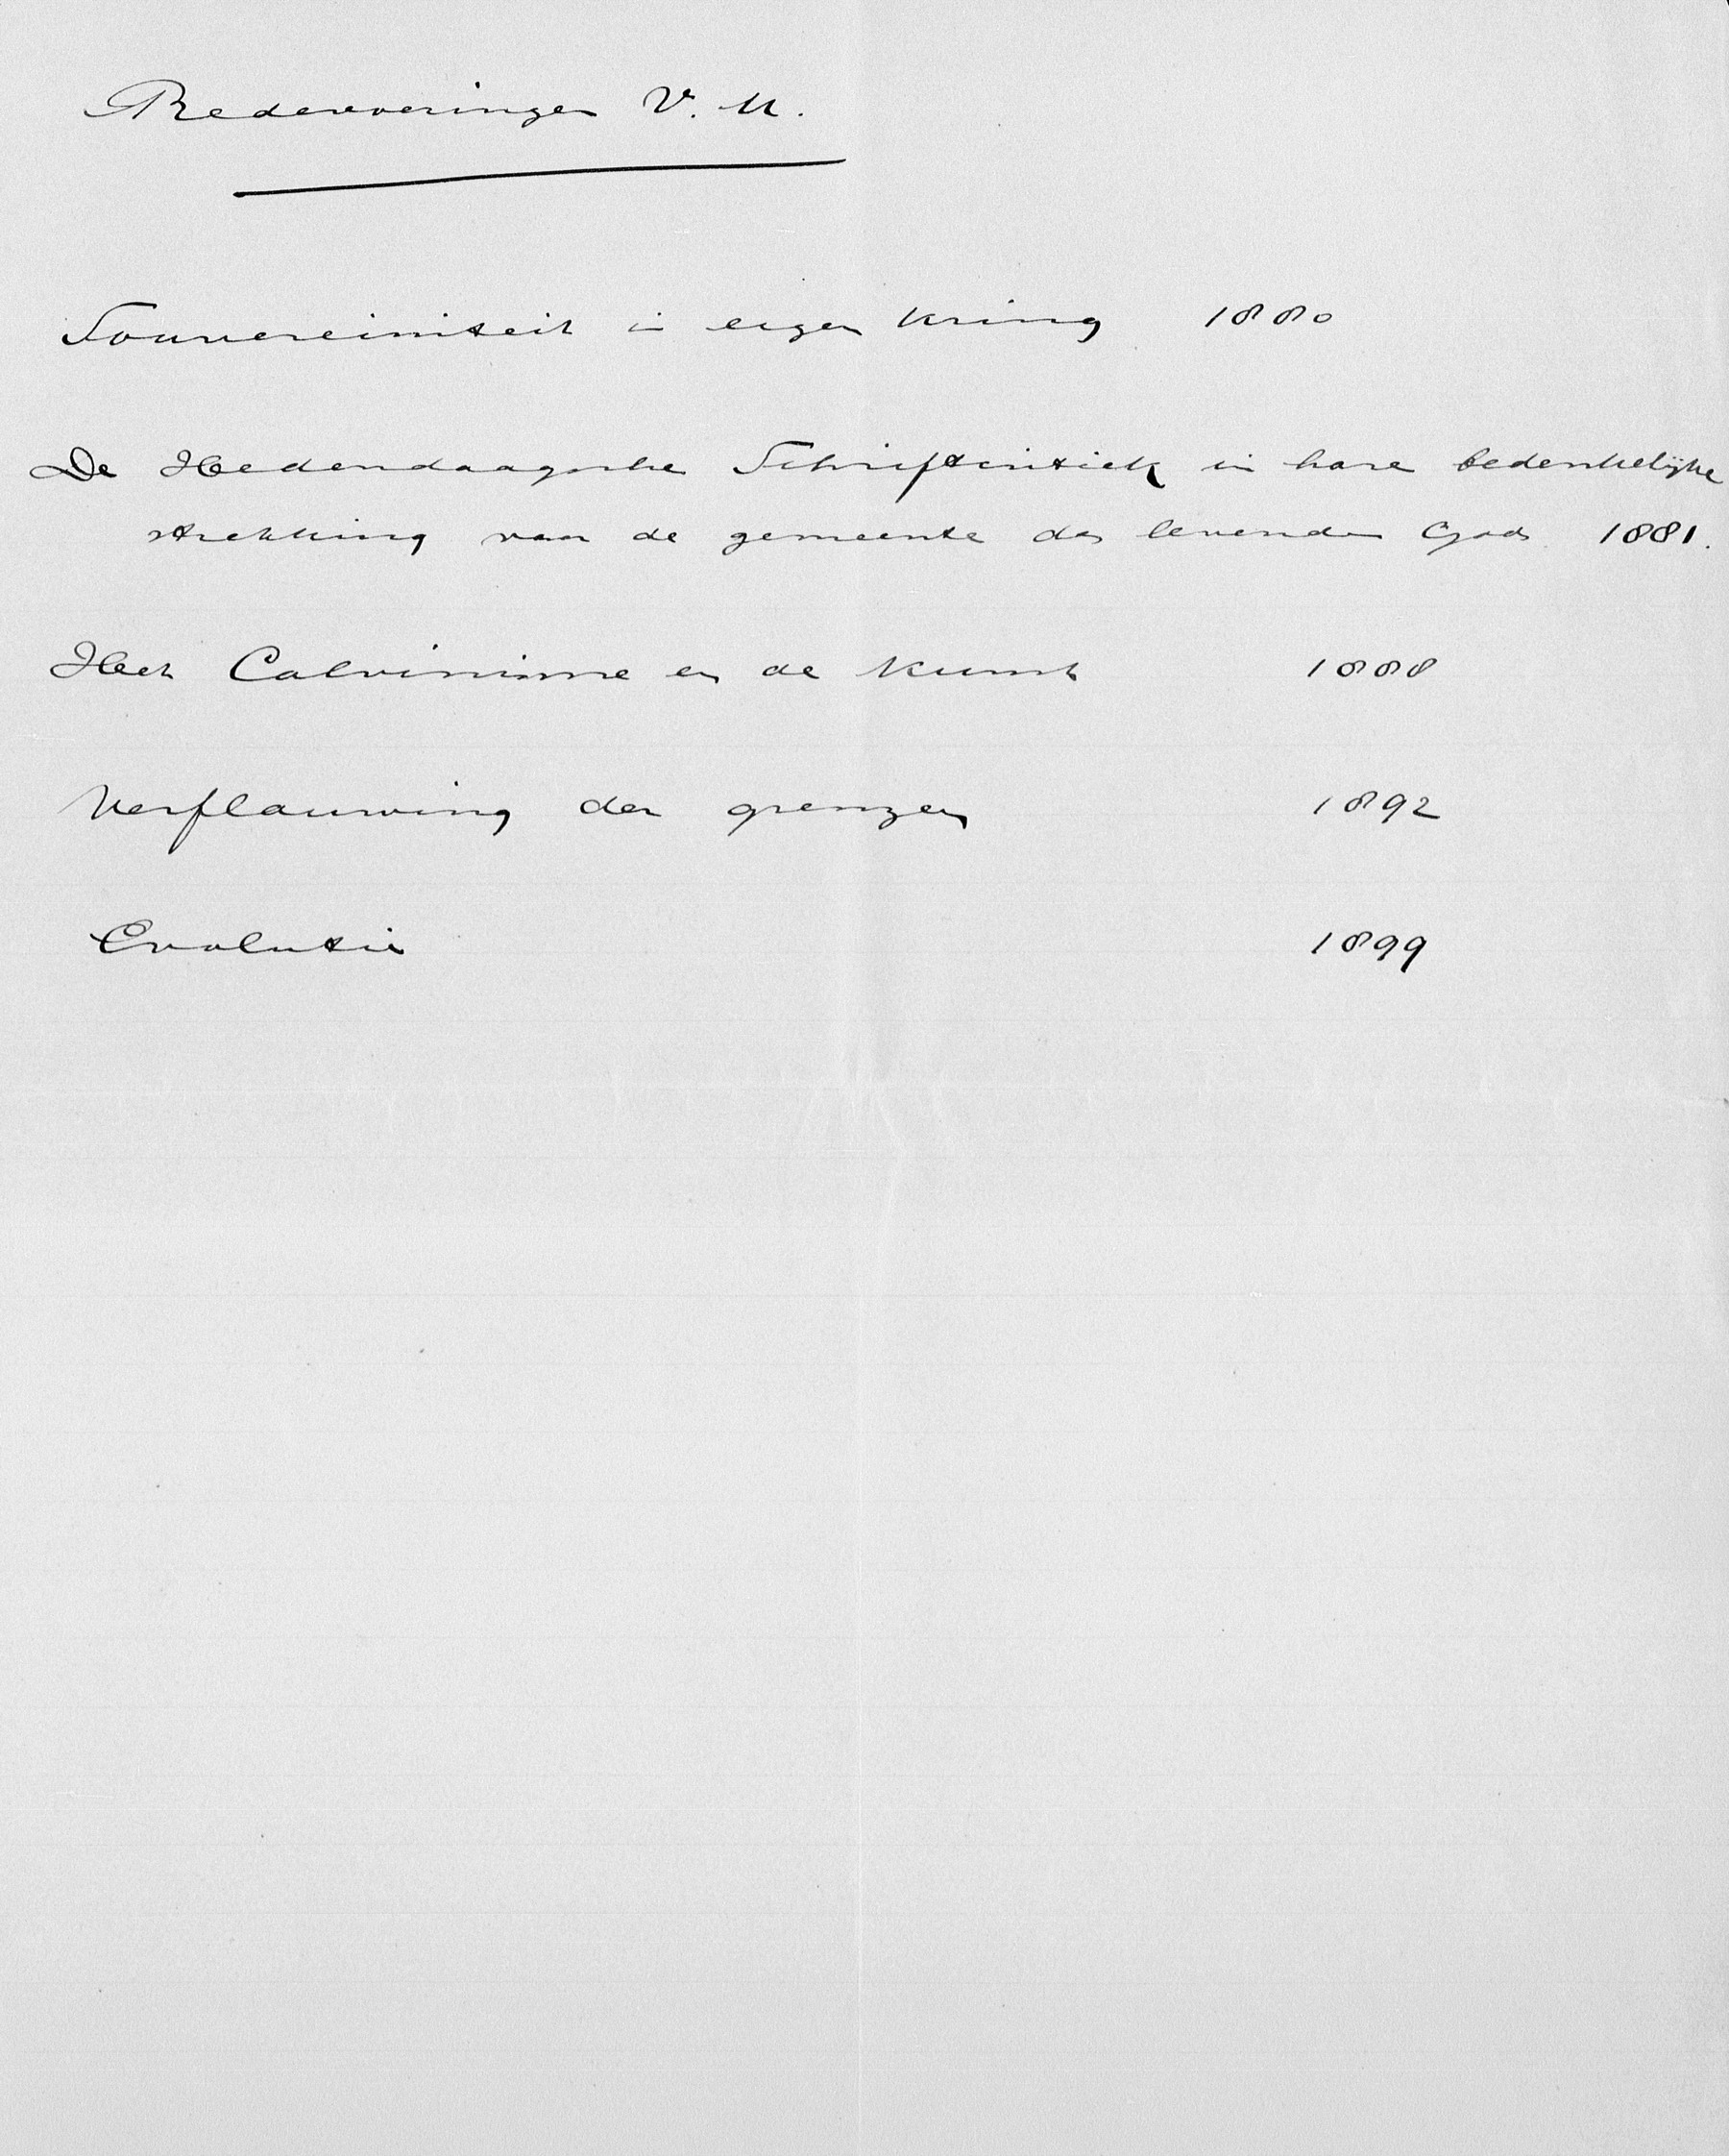 Redevoeringen V. U.
Souvereiniteit in eigen kring 1880
De Hedendaagsche Schriftcritiek in hare bedenkelijke
strekking voor de gemeente des levenden Gods 1881.
Het Calvinisme en de Kunst 1888
Verflauwing der grenzen 1892
Evolutie 1899